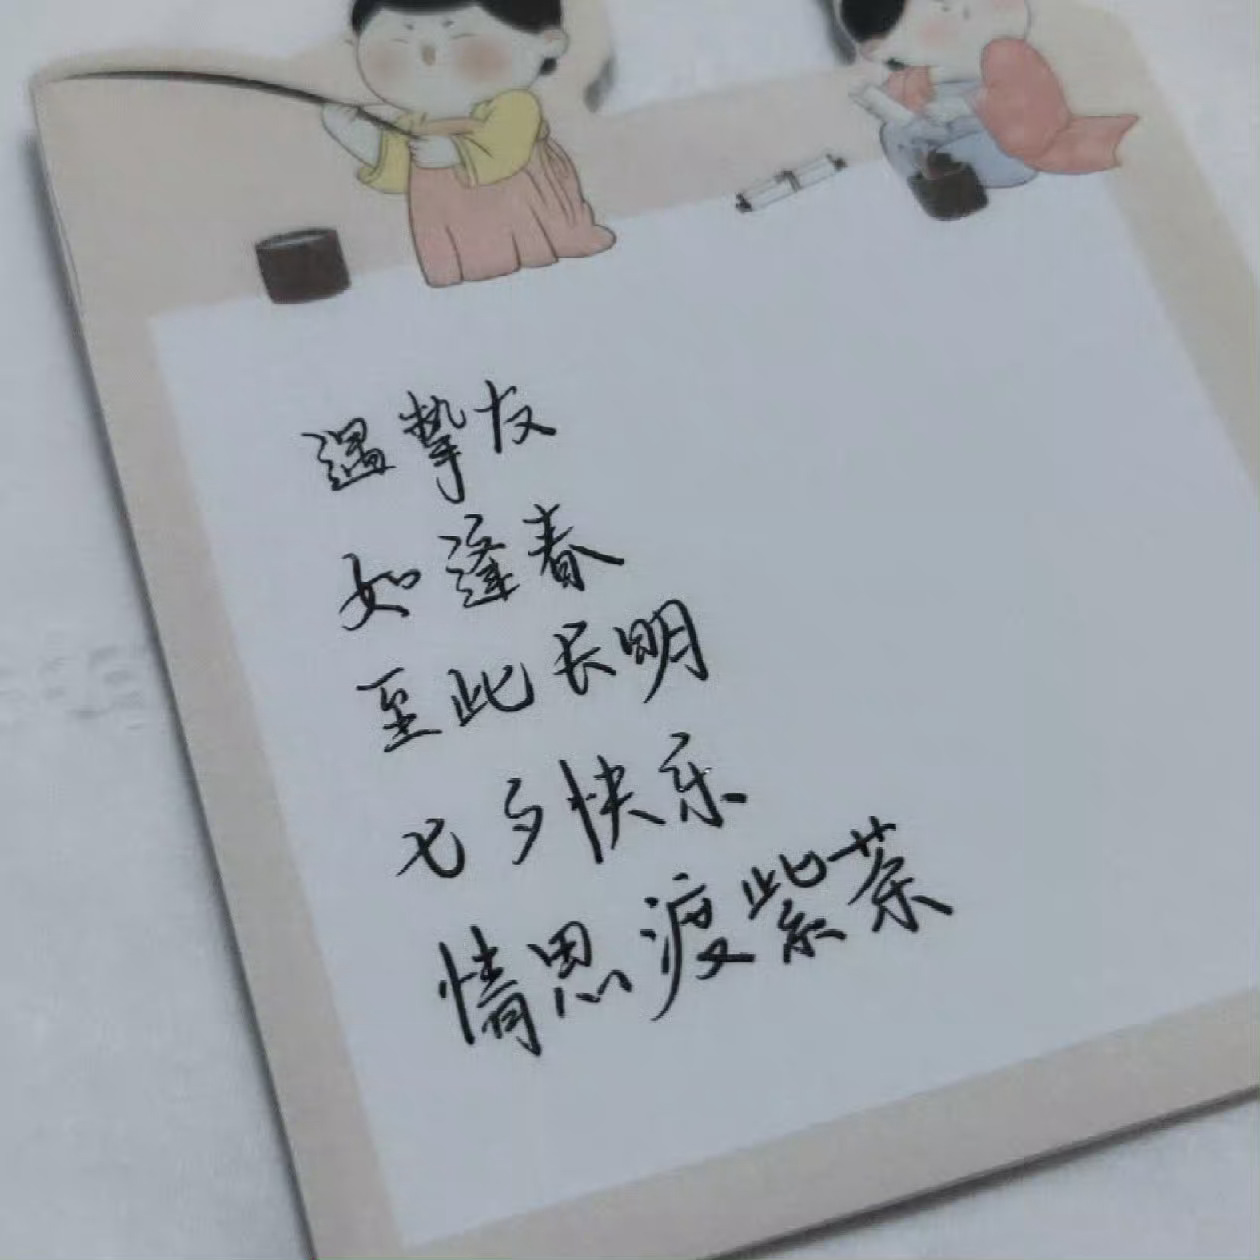 遇挚友
如逢春
至此长明
七夕快乐
情思渡紫茶